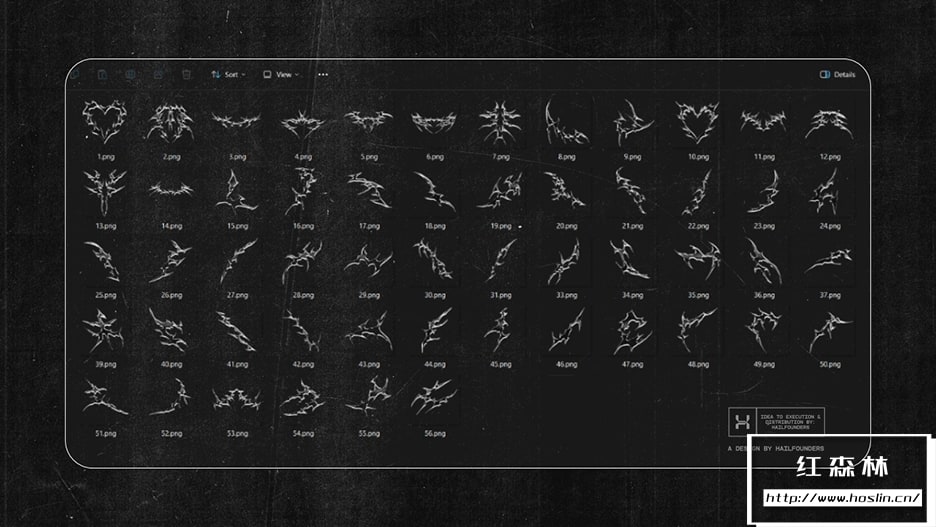 Sort View ••• Details
1.png 2.png 3.png 4.png 5.png 6.png 7.png 8.png 9.png 10.png 11.png 12.png
13.png 14.png 15.png 16.png 17.png 18.png 19.png 20.png 21.png 22.png 23.png 24.png
25.png 26.png 27.png 28.png 29.png 30.png 31.png 33.png 34.png 35.png 36.png 37.png
39.png 40.png 41.png 42.png 43.png 44.png 45.png 46.png 47.png 48.png 49.png 50.png
51.png 52.png 53.png 54.png 55.png 56.png
IDEA TO EXECUTION &
DISTRIBUTION BY:
HAILFOUNDERS
A DESIGN BY HAILFOUNDERS
红森林
http://www.hoslin.cn/